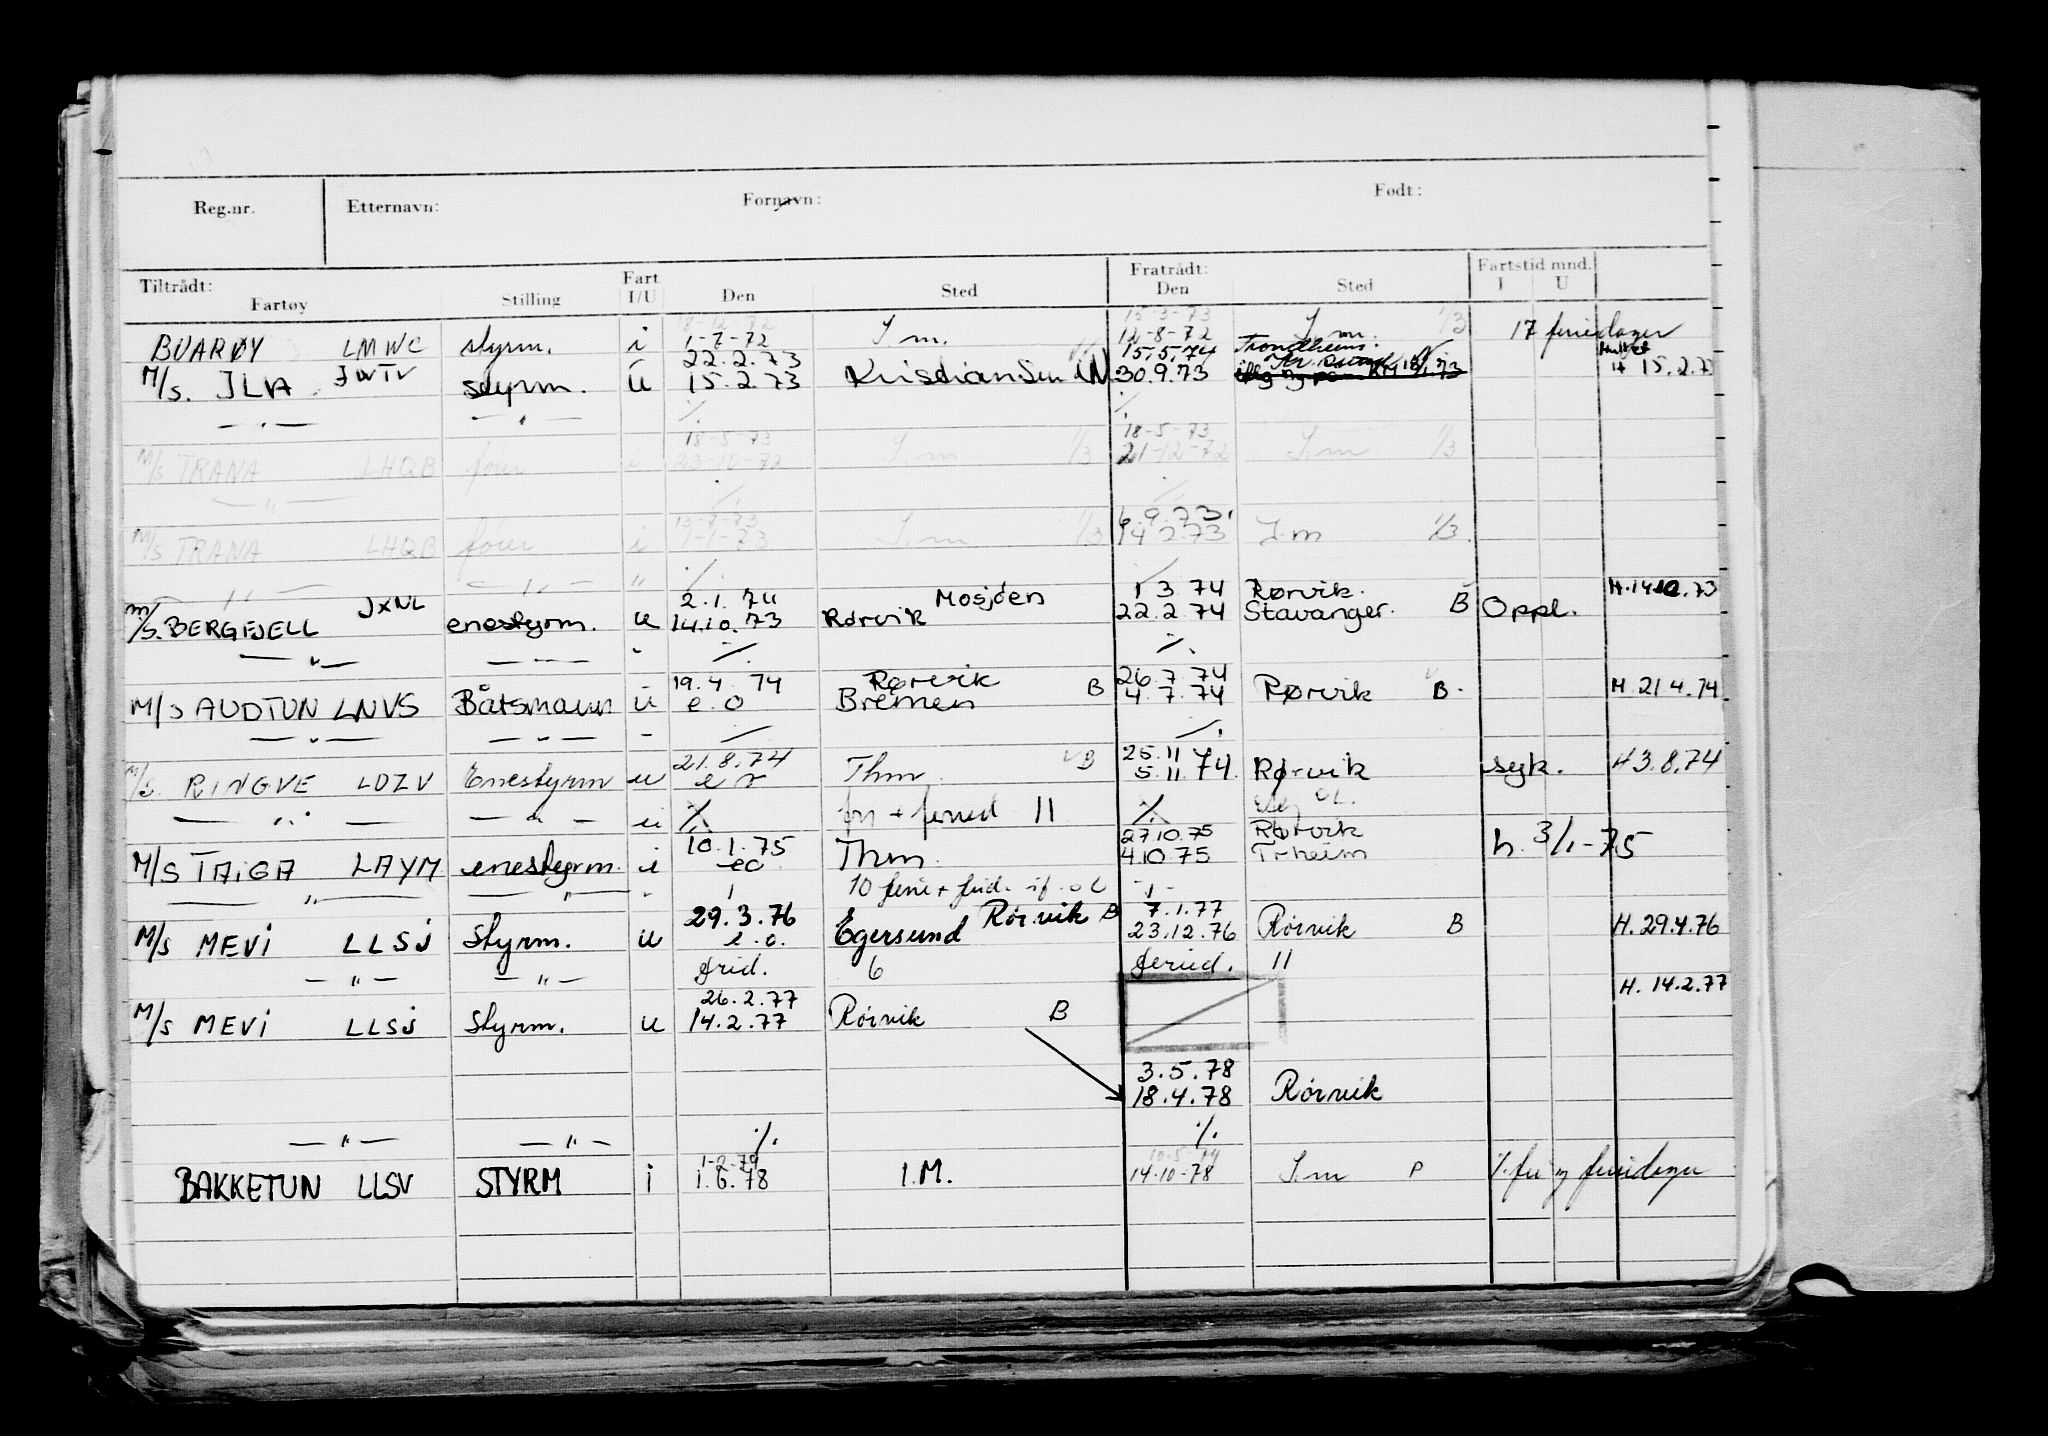 Reg.nr. Etternavn: Fornavn: Født:
Tiltrådt: Fart Fratrådt: Fartstid mnd.
Fartøy Stilling I/U Den Sted Den Sted I U
18-12-72 15-3-73
BUARØY LMWC styrm. i 1-7-72 I m. 12-8-72 I m. 1/3 17 feriedager
22.2.73 15.5.74 Trondheim.
M/s. JLVA JWTV styrm. u 15.2.73 Kristiansund N 30.9.73 H 15.2.73
— " — — " — ·/. ·/.
18-5-73 18-5-73
M/s TRANA LHQB fører i 23-10-72 I m 1/3 21-12-72 I.m 1/3
— " — ·/. ·/.
13-7-73 6.9.73.
M/s TRANA LHQB fører i 1-1-73 I.m 1/3 14 2.73 I.m 1/3
— " — — " — " ·/. ·/.
2.1.74 Mosjøen 1 3.74 Rørvik. H.14.10.73
m/s. BERGFJELL JXNL enestyrm. u 14.10.73 Rørvik 22.2.74 Stavanger. B Oppl.
— " — — — - ·/. ·/.
19.4.74 Rørvik 26.7.74
M/s AUDTUN LNVS Båtsmann u e.o Bremen B 4.7.74 Rørvik B. H.21.4.74
— " — — " — - ·/. ·/.
21.8.74 25.11
M/s. RINGVE LDZV Enestyrm u Thm. B 5.11.74. Rørvik syk. H 3.8.74
— " — — " — u ·/. fri + feried 11 ·/.
10.1.75 27.10.75 Rørvik
M/S TAIGA LAYM enestyrm. i eo Thm. 4.10.75 Trheim h. 3/1-75
— " — — " — - 10 ferie + frid.
29.3.76 Rørvik B 7.1.77
M/s MEVI LLSJ Styrm. u e.o. Egersund 23.12.76 Rørvik B H.29.4.76
— " — — " — frid. 6 feried. 11
26.2.77 H. 14.2.77
M/s MEVI LLSJ Styrm. u 14.2.77 Rørvik B
3.5.78
18.4.78 Rørvik
— " — — " — ·/. ·/.
1-2-79 10-5-79
BAKKETUN LLSV STYRM i 1.6.78 I.M. 14-10-78 I.m P ·/. fri og feriedager